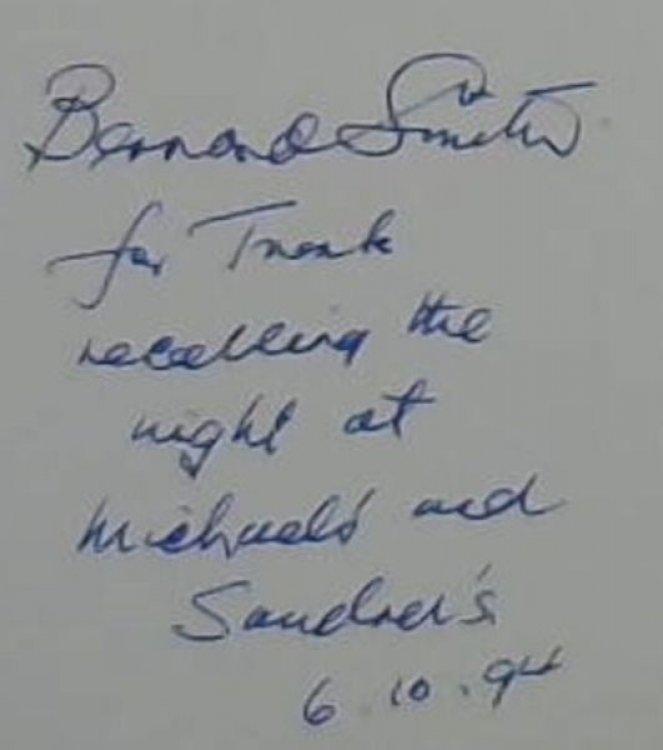 Bernard Smith
for Frank
recalling the
night at
Michael's and
Sandra's
6.10.94